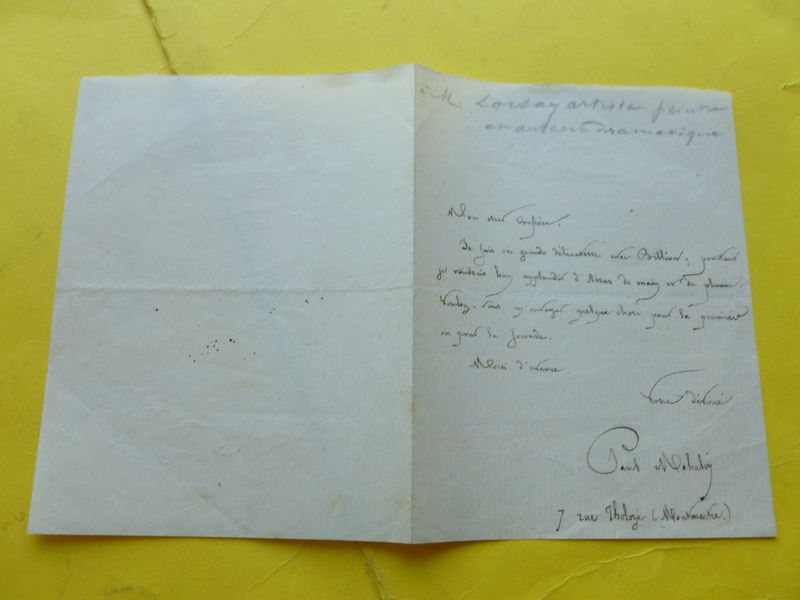 à M. Lorsay artiste peintre
et auteur dramatique
Mon cher Confrère.
Je suis en grande délicatesse avec Billion; pourtant
je voudrais bien applaudir d'Assas de main et de plume.
Voulez-vous m'envoyer quelque chose pour la première
ou pour la seconde.
Merci d'avance.
Votre dévoué
Paul Mahalin
7 rue Tholozé (Montmartre.)